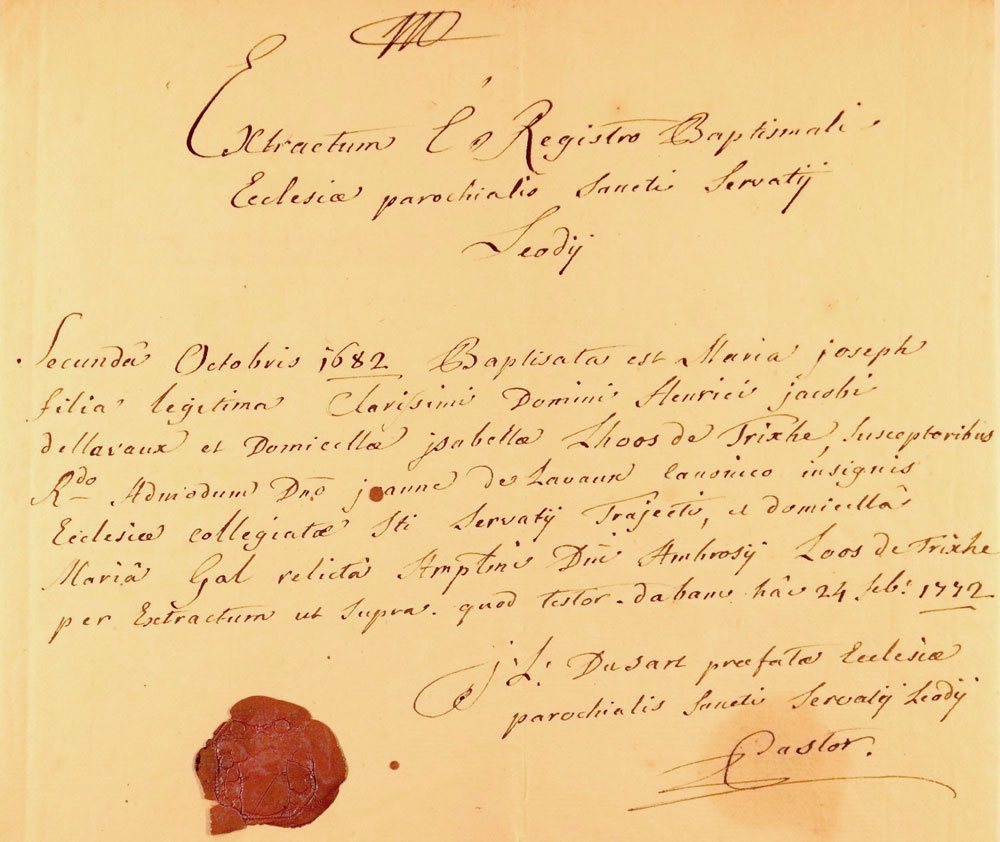 Extractum E Registro Baptismali
Ecclesiæ parochialis Sancti Servatij
Leodij
Secundâ Octobris 1682 Baptisata est Maria joseph
filia legitima Clarissimi Domini Henrici jacobi
dellavaux et Domicellæ jsabellæ Lhoos de Trixhe, Susceptoribus
Rdo Admodum Dno joanne de Lavaux Canonico insignis
Ecclesiæ collegiatæ Sti Servatij Trajecti, et domicellâ
Mariâ Gal relictâ Amplmi Dni Ambrosij Loos de Trixhe
per Extractum ut supra. quod testor. dabam hâc 24 feb: 1772
j: L: Dusart præfatæ Ecclesiæ
parochialis Sancti Servatij Leodij
Pastor.